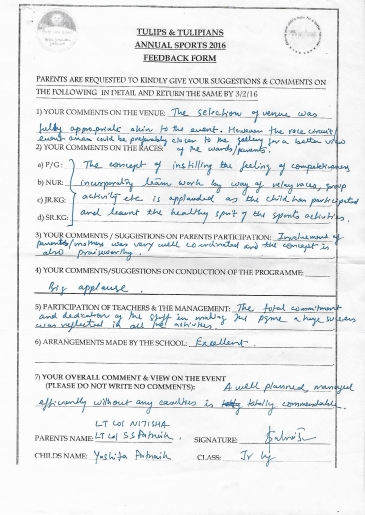 TULIPS & TULIPIANS
ANNUAL SPORTS 2016
FEEDBACK FORM
PARENTS ARE REQUESTED TO KINDLY GIVE YOUR SUGGESTIONS & COMMENTS ON
THE FOLLOWING IN DETAIL AND RETURN THE SAME BY 3/2/16
1) YOUR COMMENTS ON THE VENUE: The selection of venue was
fully appropriate akin to the event. However the race circuit/
event area could be preferably closer to the gallery for a better view
of the wards/parents.
2) YOUR COMMENTS ON THE RACES:
a) P/G: The concept of instilling the feeling of competitiveness
b) NUR: incorporating team work by way of relay races, group
c) JR.KG: activity etc is applauded as the child has participated
d) SR.KG: and learnt the healthy spirit of the sports activities.
3) YOUR COMMENTS / SUGGESTIONS ON PARENTS PARTICIPATION: Involvement of
parents/mothers was very well co-ordinated and the concept is
also praiseworthy.
4) YOUR COMMENTS/SUGGESTIONS ON CONDUCTION OF THE PROGRAMME:
Big applause.
5) PARTICIPATION OF TEACHERS & THE MANAGEMENT: The total commitment
and dedication of the staff in making the a huge success
was reflected in all activities.
6) ARRANGEMENTS MADE BY THE SCHOOL: Excellent.
7) YOUR OVERALL COMMENT & VIEW ON THE EVENT
(PLEASE DO NOT WRITE NO COMMENTS): A well planned, managed
efficiently without any is totally commendable.
LT Col NITISHA
PARENTS NAME: LT Col S S Patnaik. SIGNATURE:
CHILDS NAME: Yashita Patnaik CLASS: Jr kg